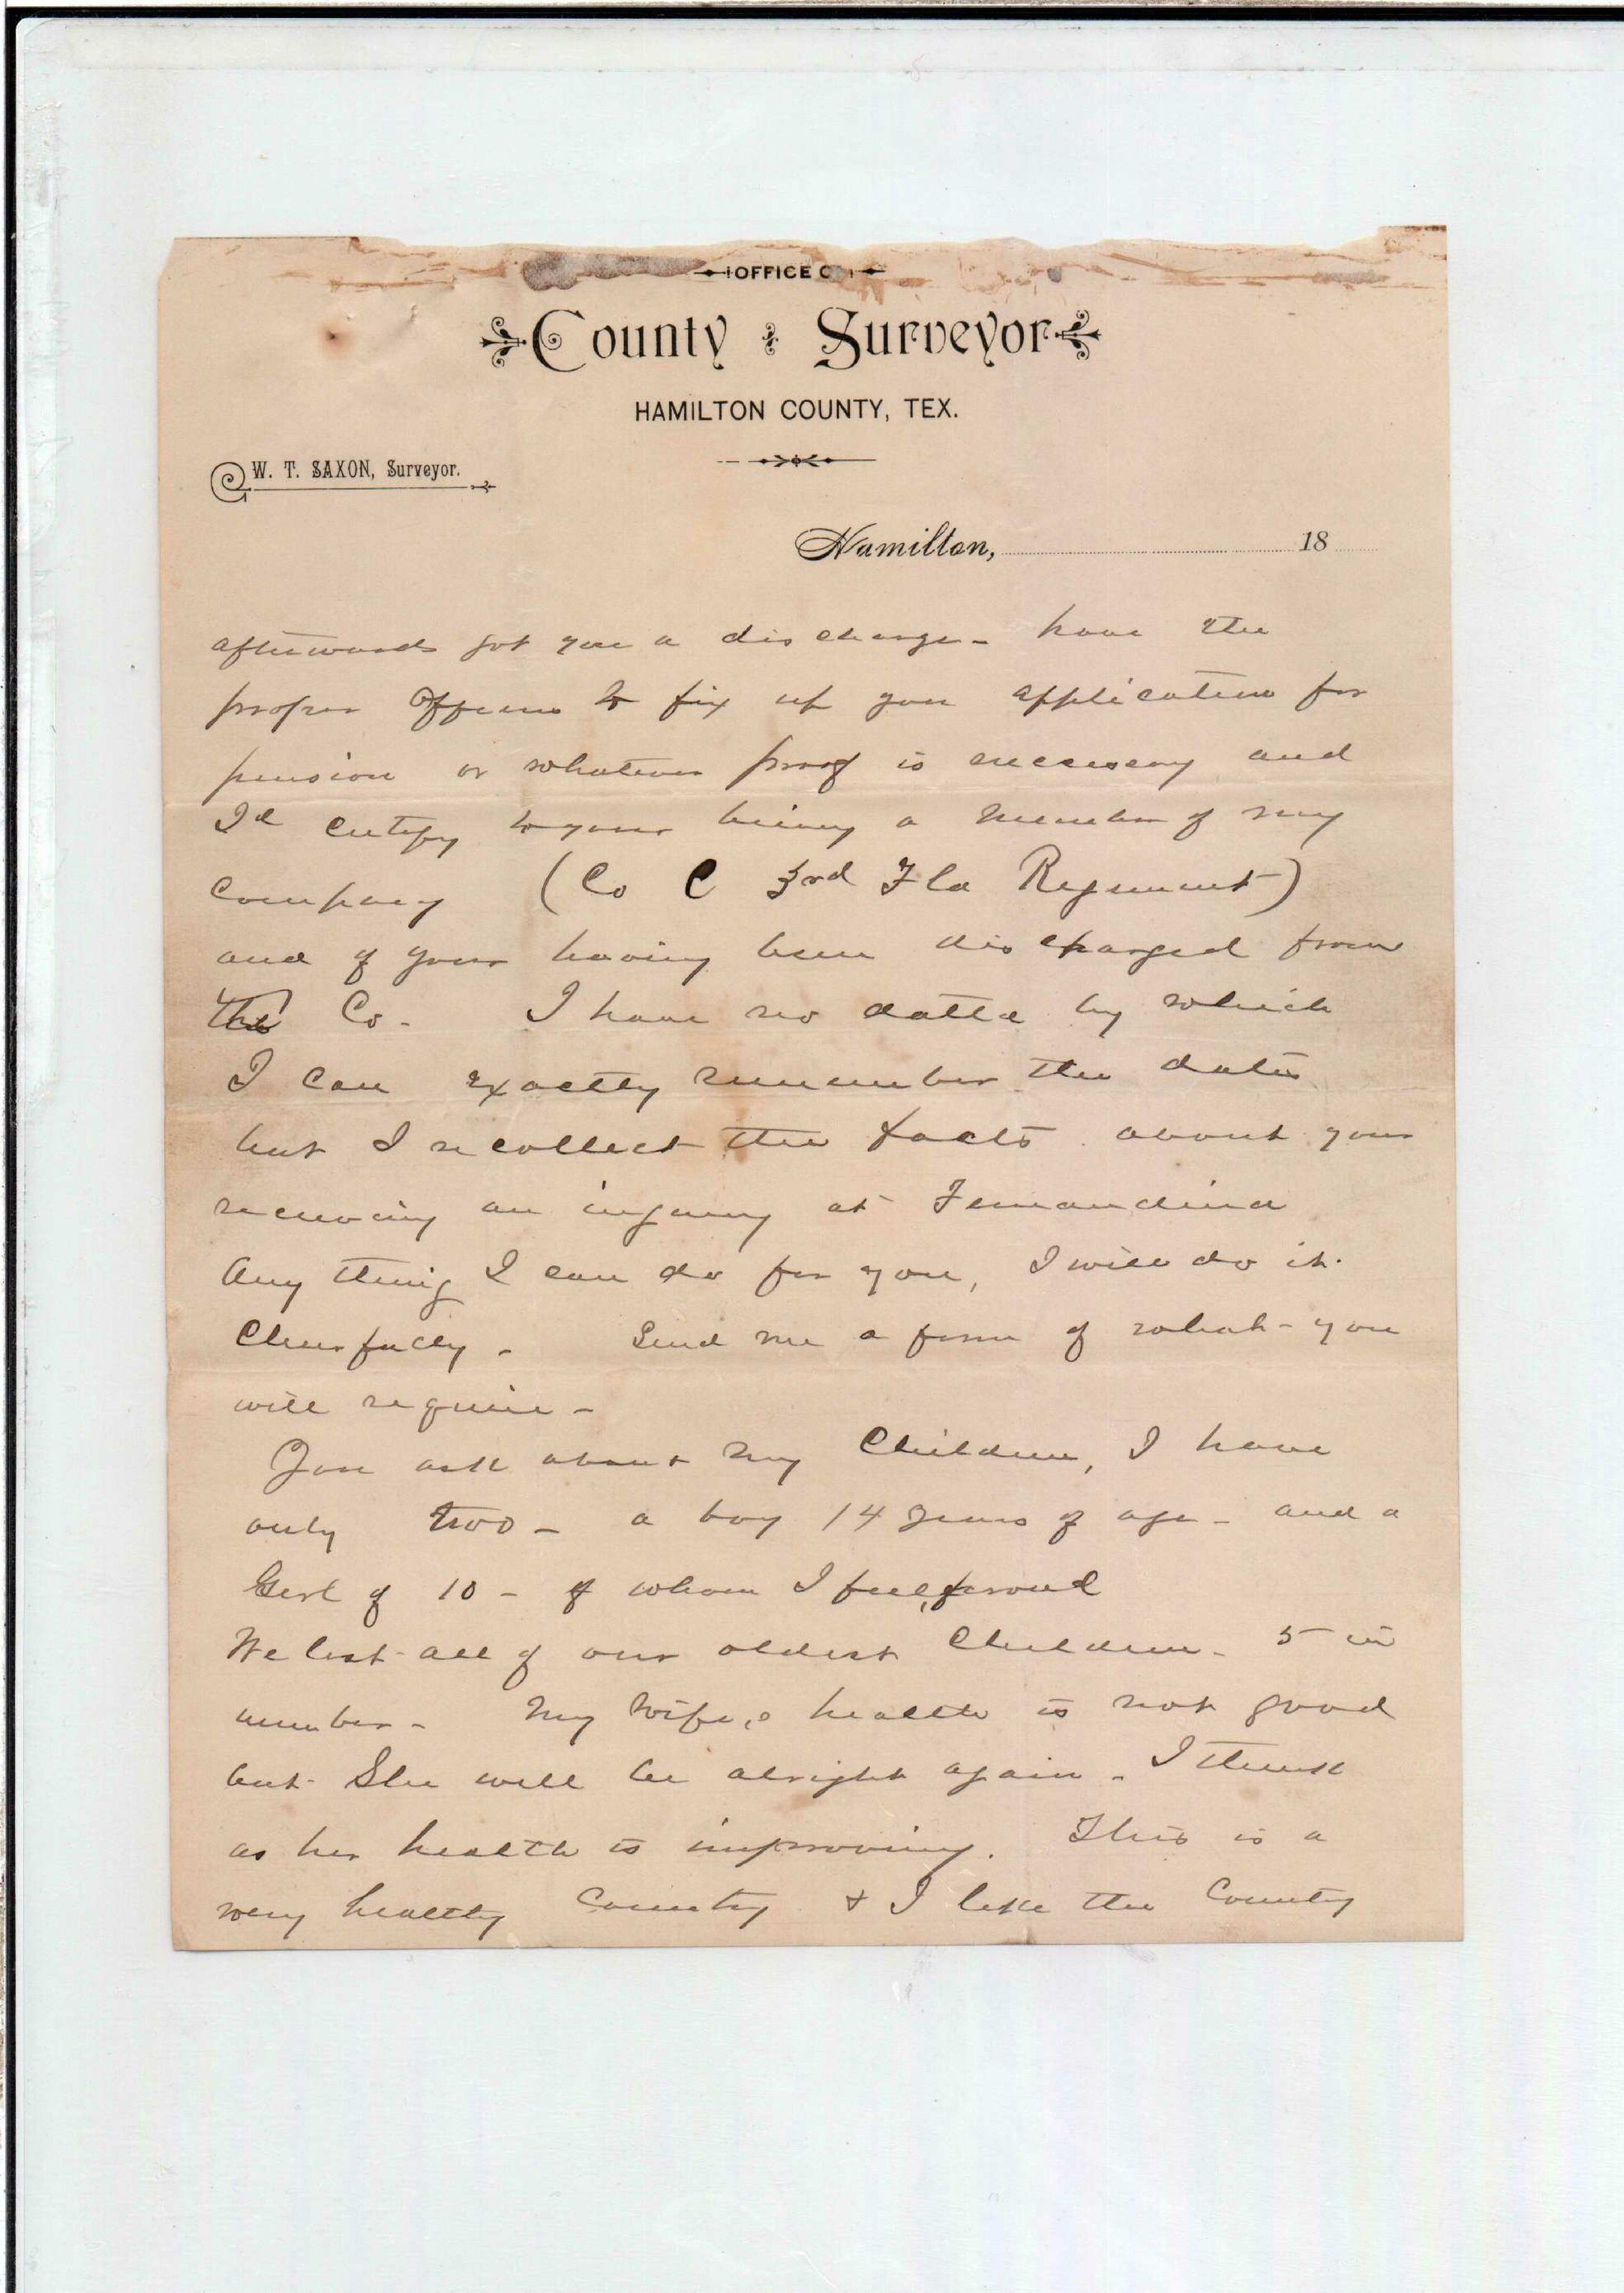 OFFICE O
County Surveyor
HAMILTON COUNTY, TEX.
W. T. SAXON, Surveyor.
Hamilton, 18
afterwards got you a discharge - have the
proper officers to fix up your application for
pension or whatever proof is necessary and
I'll certify to your being a member of my
Company (Co C 3rd Fla Regiment)
and of your having been discharged from
the Co. I have no datta by which
I can exactly remember the dates
but I recollect the facts about your
receiving an injury at Fernandina
Any thing I can do for you, I will do it.
Cheerfully. Send me a form of what you
will require -
You ask about my Children, I have
only two - a boy 14 years of age - and a
Girl of 10 - of whom I feel proud
We lost all of our oldest Children - 5 in
number - My wife,s health is not good
but She will be alright again - I think
as her health is improving. This is a
very healthy Country & I like the County